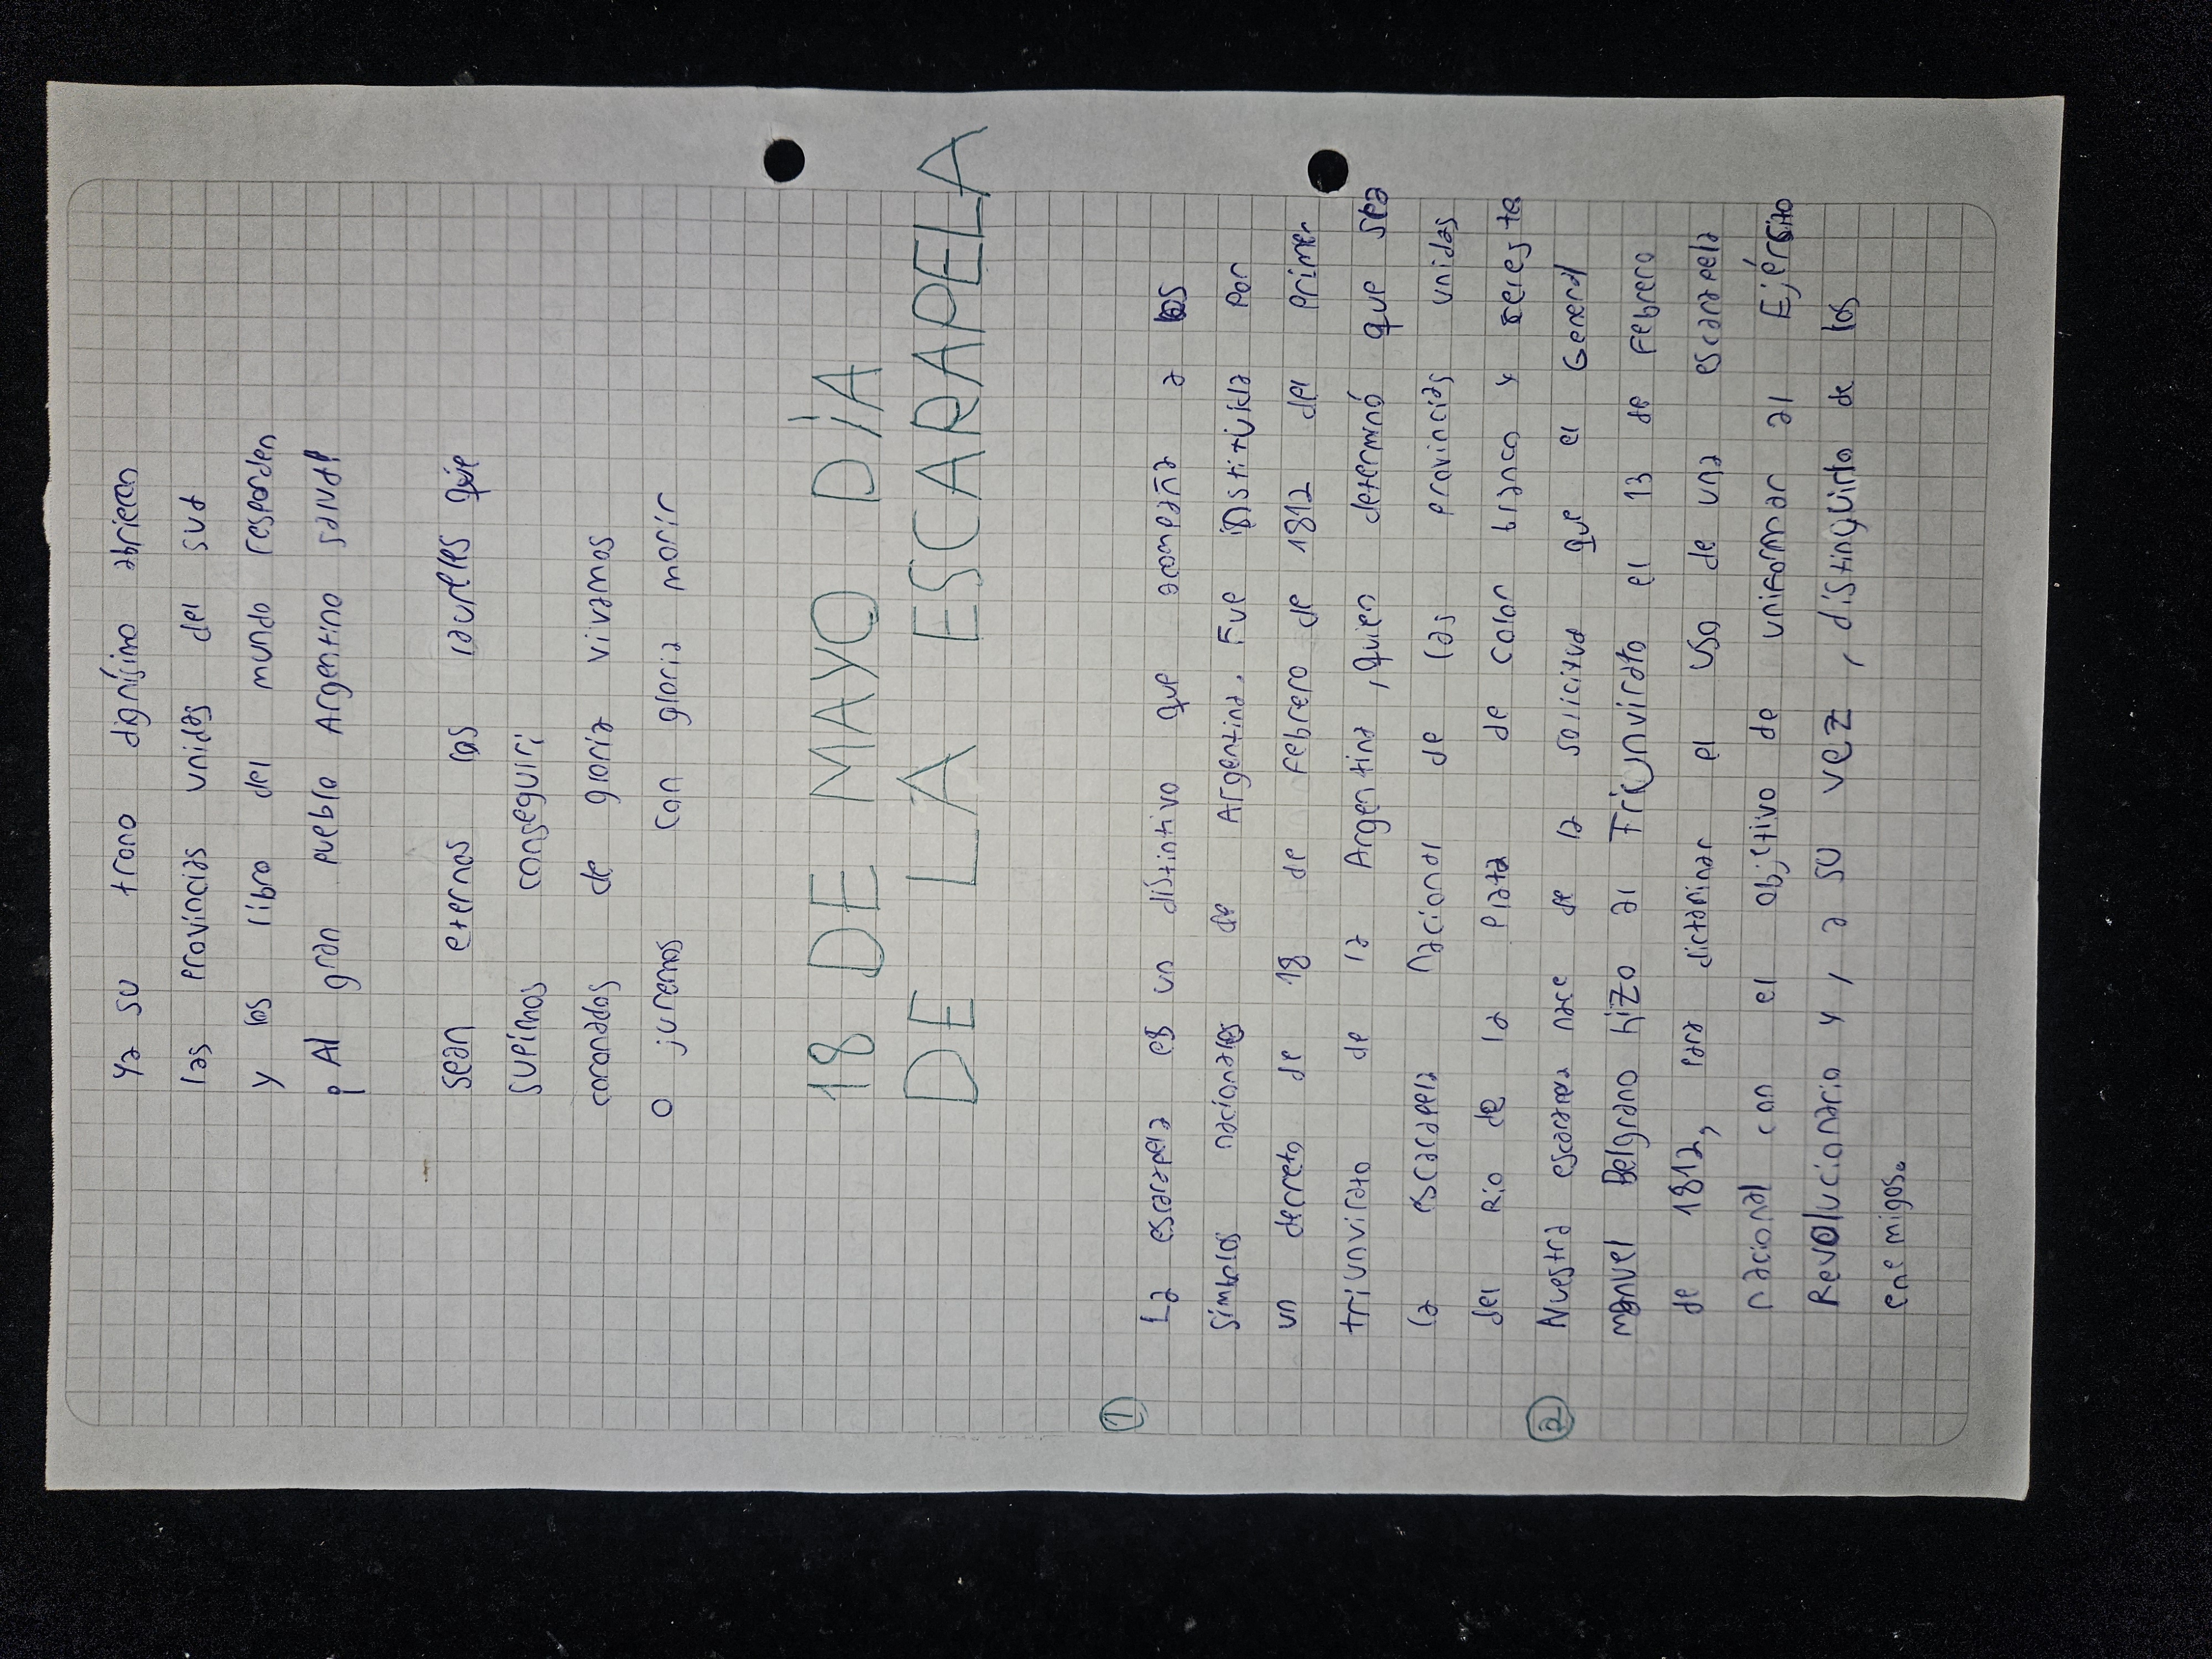 Ya su trono dignísimo abrieron
las provincias unidas del sud
y los libro del mundo responden
¡Al gran pueblo Argentino salud!
sean eternos los laureles que
supimos conseguir;
coronados de gloria vivamos
O juremos con gloria morir
18 DE MAYO DÍA
DE LA ESCARAPELA
① La escarapela es un distintivo que acompaña a los
símbolos nacionales de Argentina. Fue institúida por
un decreto de 18 de Febrero de 1812 del primer
triunvirato de la Argentina, quien determinó que sea
la escarapela nacional de las provincias unidas
del Río de la plata de color blanco y celeste
② Nuestra escarapela nace de la solicitud que el General
manuel Belgrano hizo al Triunvirato el 13 de Febrero
de 1812, para dictaminar el uso de una escarapela
nacional con el objetivo de uniformar al Ejército
Revolucionario y, a su vez, distinguirlo de los
enemigos.